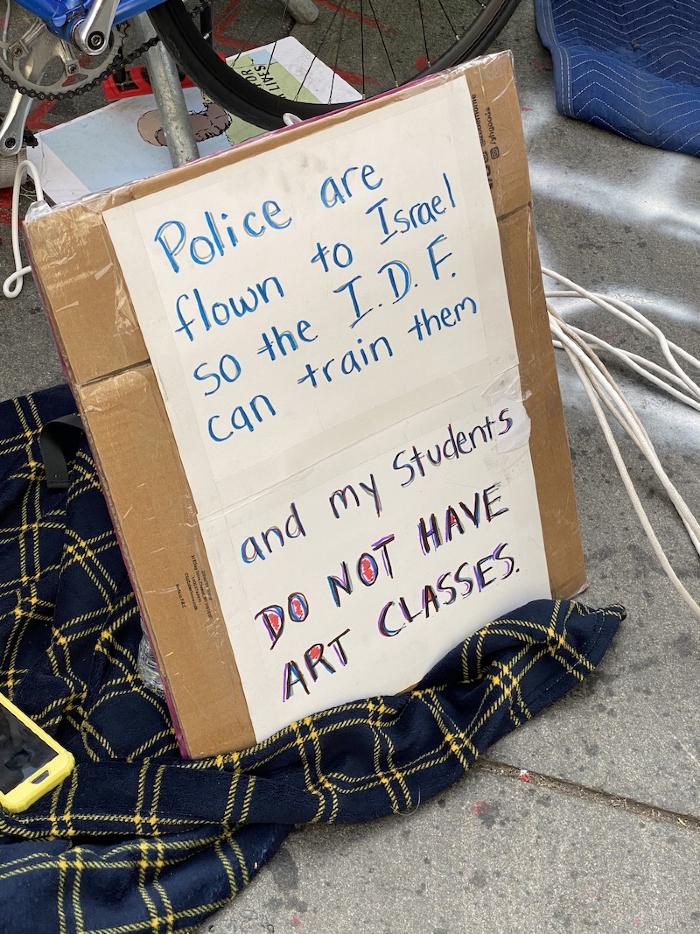 Police are
flown to Israel
so the I.D.F.
can train them
and my Students
DO NOT HAVE
ART CLASSES.
LIVES